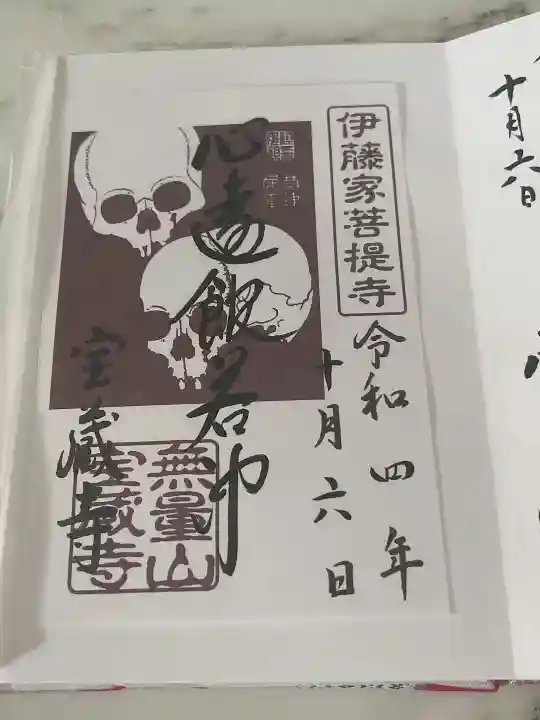 十月六日
伊藤家菩提寺
令和四年
十月六日
心遠飯若中
宝蔵寺
無量山
宝蔵寺